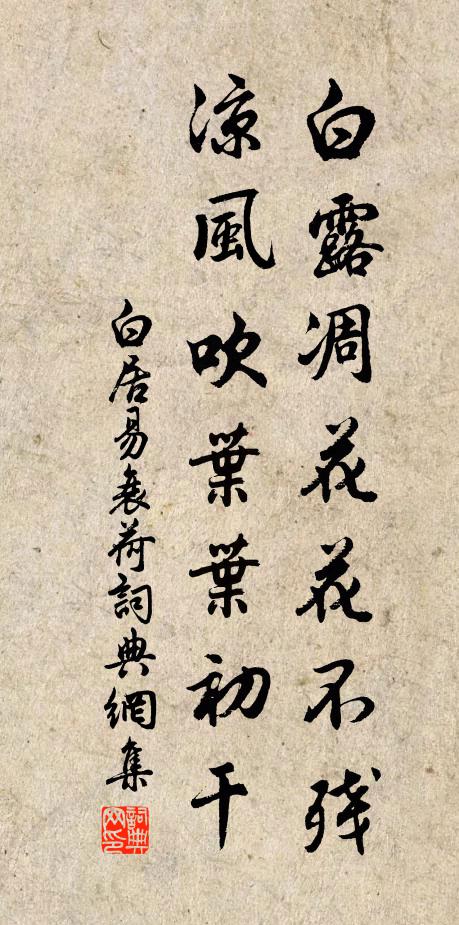 白露凋花花不残
凉風吹葉葉初干
白居易衰荷詞典網集
詞典网印